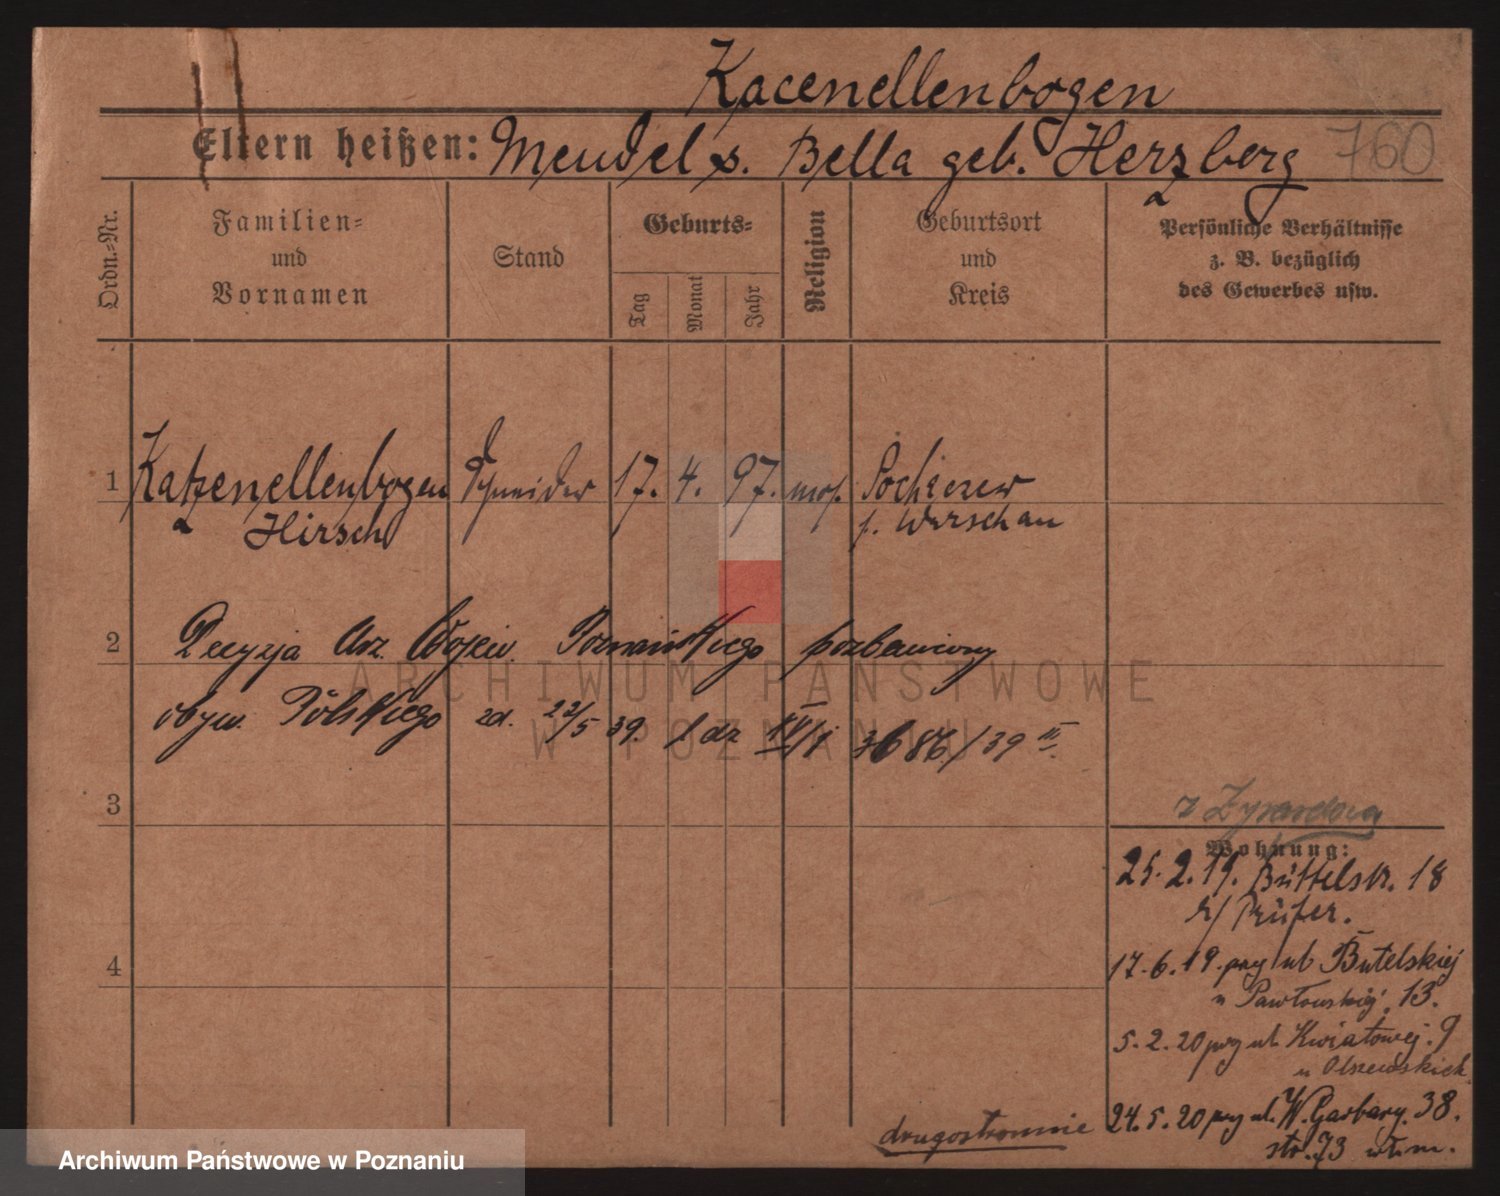 Kacenellenbogen
Eltern heißen: Mendel s. Bella geb. Herzberg 760
Ordn.-Nr.
Familien-
und
Vornamen
Stand
Geburts-
Tag
Monat
Jahr
Religion
Geburtsort
und
Kreis
Persönliche Verhältnisse
z. B. bezüglich
des Gewerbes usw.
1 Katzenellenbogen Schneider 17. 4. 97. mos. Sochczew
Hirsch
Warschau
2 Decyzją Urz. Wojew. Poznańskiego pozbawiony
obyw. Polskiego zd. 22/5 39. l dz 3686/39
3
z Żyrardowa
Wohnung:
25. 2. 19. Büttelstr. 18
b/ Prüfer.
17. 6. 19. przy ul. Butelskiej
u Pawłowskiej. 13.
4
5. 2. 20 przy ul. Kwiatowej. 9
u Olszewskich
24. 5. 20 przy ul. W. Garbary. 38.
str. 73
drugostronnie
ARCHIWUM PAŃSTWOWE
W POZNANIU
Archiwum Państwowe w Poznaniu